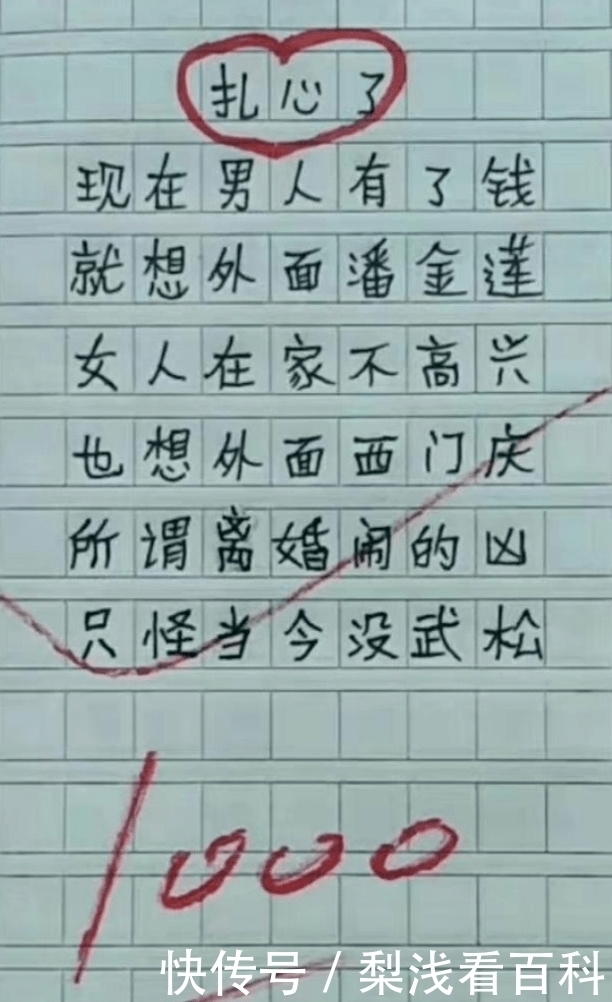 扎心了
现在男人有了钱
就想外面潘金莲
女人在家不高兴
也想外面西门庆
所谓离婚闹的凶
只怪当今没武松
1000
快传号 / 梨浅看百科